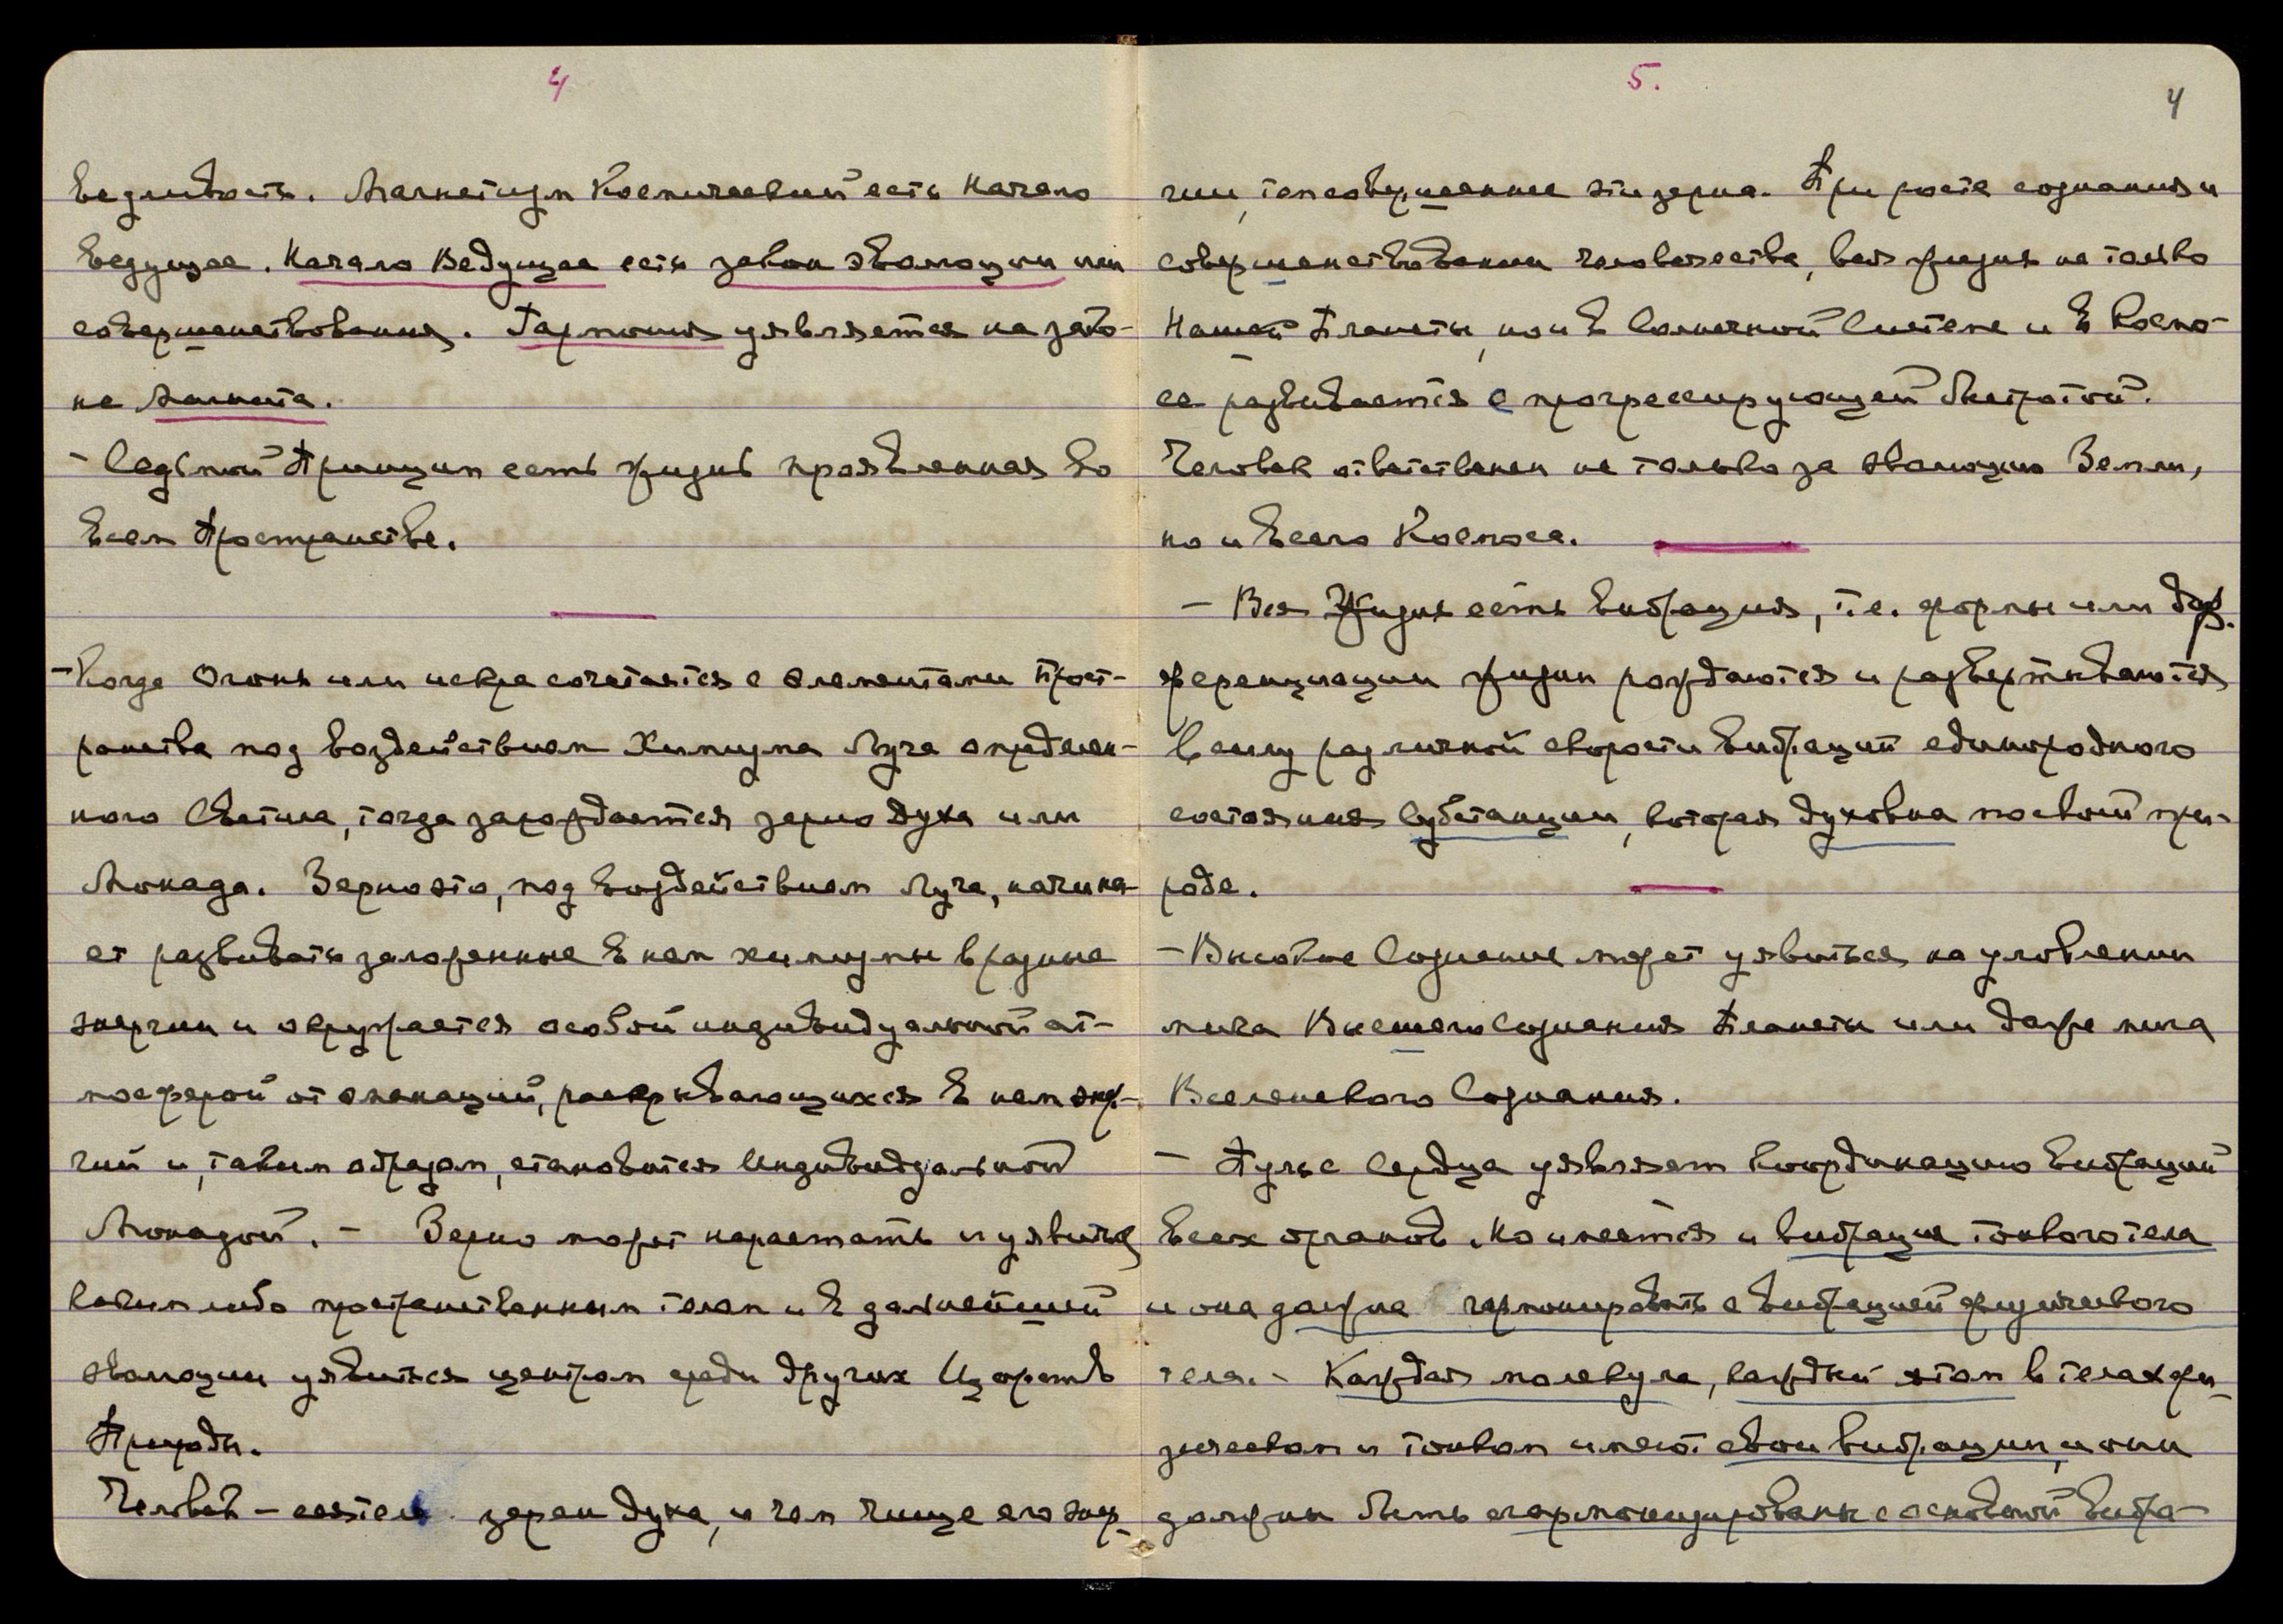 4
ведливость. Магнетизм Космический есть Начало
Ведущее. Начало Ведущее есть закон эволюции или
совершенствования. Гармония уявляется на зако-
не Магнита.
- Седьмой Принцип есть жизнь проявленная во
всем Пространстве.
- Когда Огонь или искра сочетается с элементами Прост-
ранства под воздействием Химизма Луча определен-
ного Светила, тогда зарождается зерно духа или
Монада. Зерно это, под воздействием Луча, начина-
ет развивать заложенные в нем химизмы в разные
энергии и окружается особой индивидуальной ат-
мосферой от эманаций, раскрывающихся в нем энер-
гий и, таким образом, становится Индивидуальной
Монадой. - Зерно может нарастать и уявиться
каким либо пространственным телом и в дальнейшей
эволюции уявиться центром среди других Царств
Природы.
Человек - сеятель зерен духа, и чем чище его энер-
5.
4
гии, тем совершеннее эти зерна. При росте сознания и
совершенствовании человечества, вся жизнь не только
Нашей Планеты, но и в Солнечной Системе и в Космо-
се развивается с прогрессирующей быстротой.
Человек ответственен не только за эволюцию Земли,
но и всего Космоса.
- Вся Жизнь есть вибрация, т.е. формы или диф-
ференциации жизни рождаются и развертываются
в силу различной скорости вибраций единородного
состояния Субстанции, которая духовна по своей при-
роде.
- Высокое Сознание может уявиться на уловлении
мига Высшего Сознания Планеты или даже мига
Вселенского Сознания.
- Пульс Сердца уявляет координацию вибраций
всех органов. Но имеется и вибрация тонкого тела
и она должна гармонировать с вибрацией физического
тела. - Каждая молекула, каждый атом в телах фи-
зическом и тонком имеют свои вибрации, и они
должны быть сгармонизированы с основной вибра-